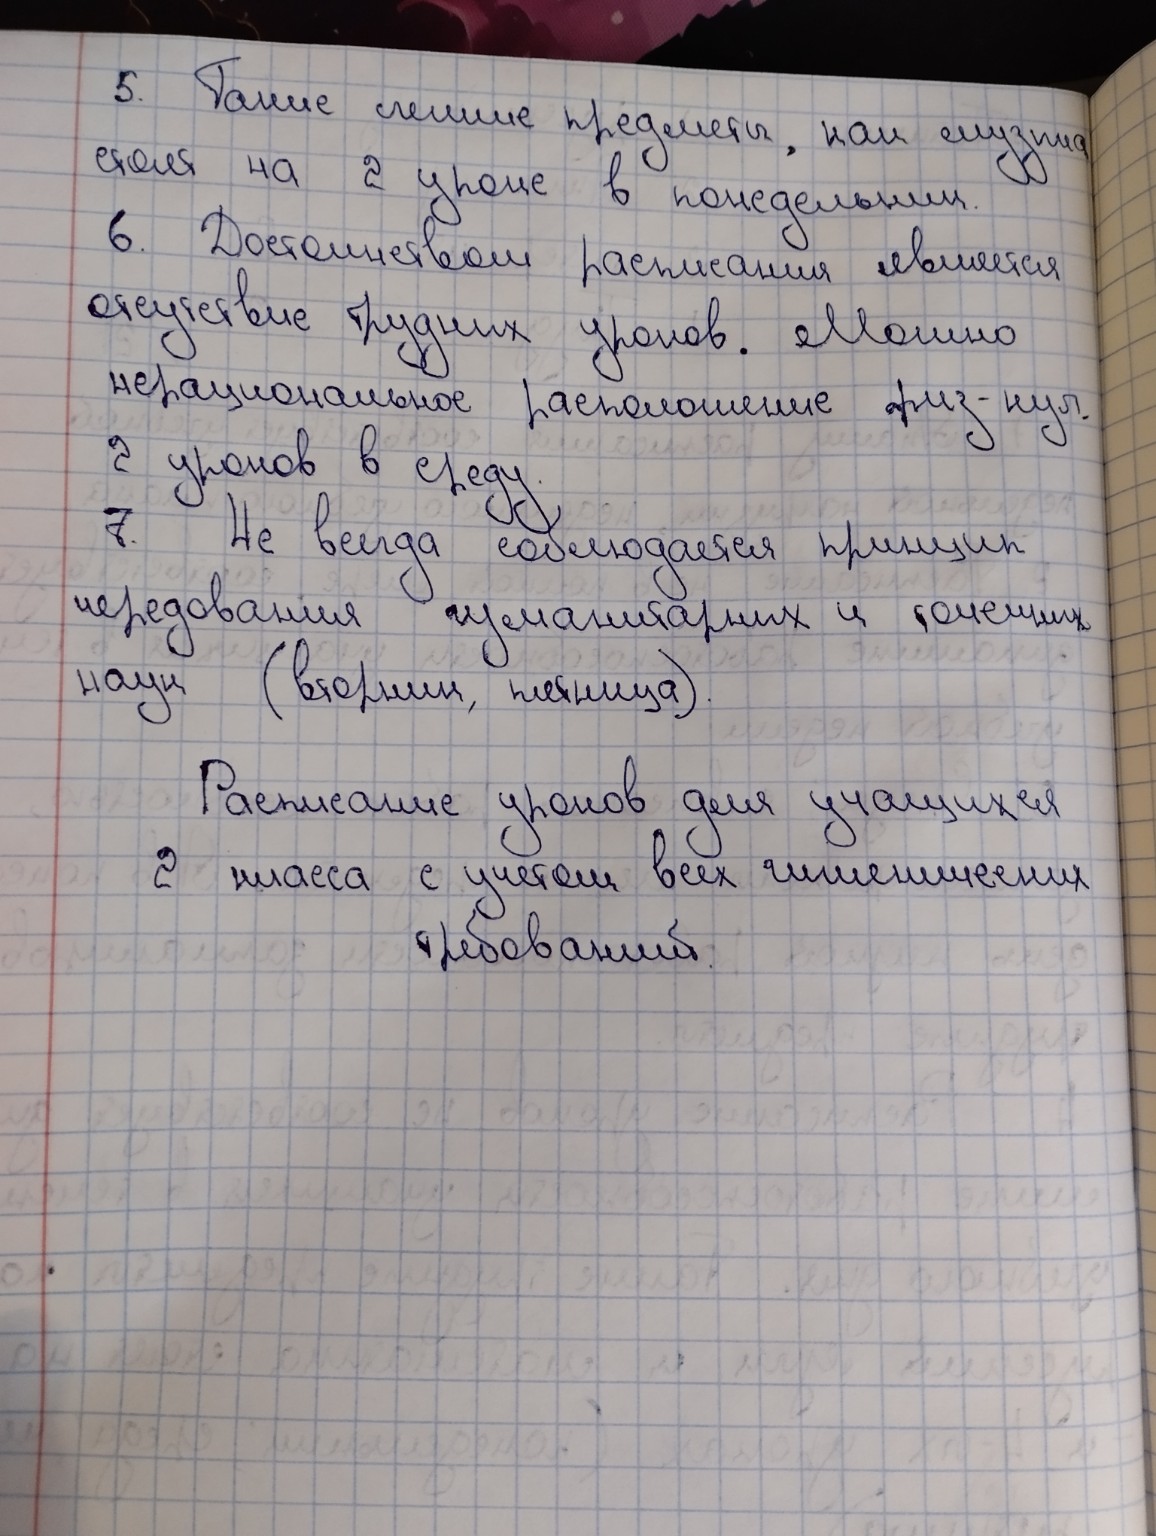 5. Такие легкие предметы, как музыка
стоят на 2 уроке в понедельник.
6. Достоинством расписания является
отсутствие трудных уроков. Можно
нерациональное расположение физ-кул.
2 уроков в среду.
7. Не всегда соблюдается принцип
чередования гуманитарных и точных
наук (вторник, пятница).
Расписание уроков для учащихся
2 класса с учетом всех гигиенических
требований.